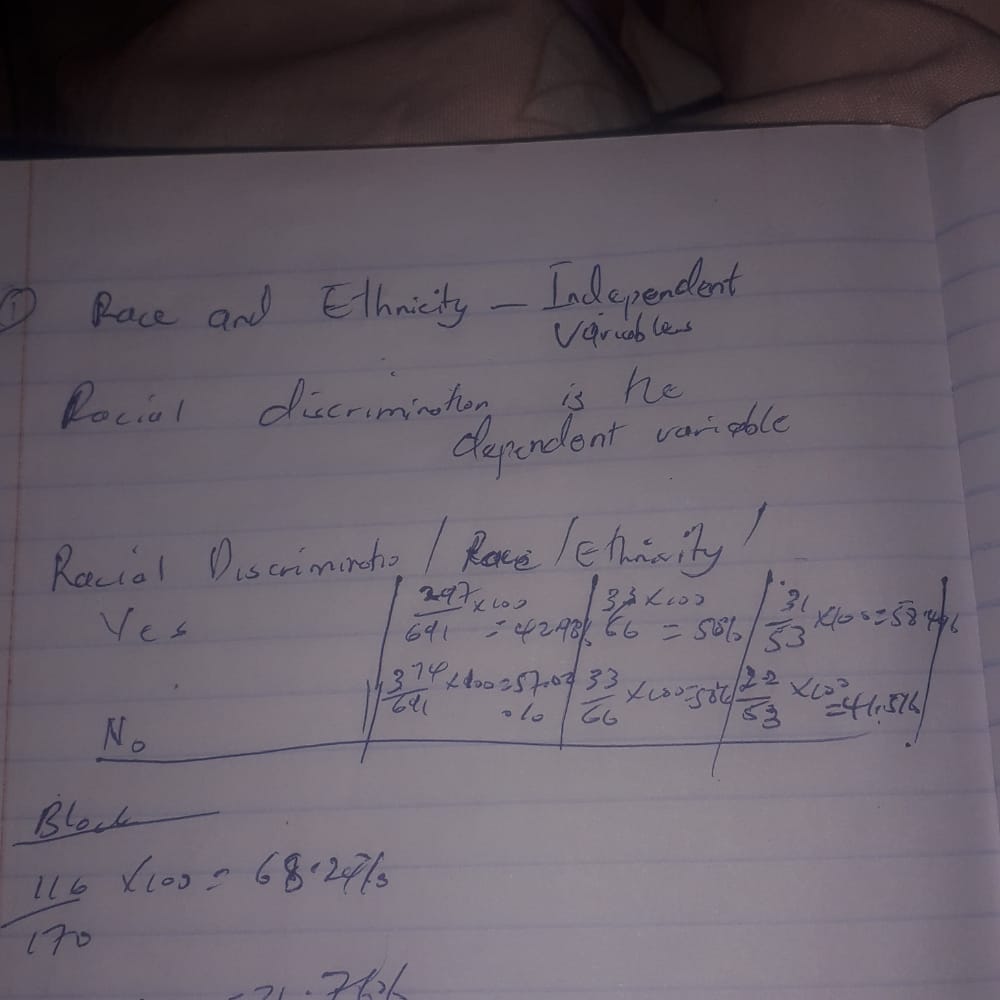 ① Race and Ethnicity — Independent
Variables
Racial discrimination is the
dependent variable
Racial Discriminatio / Race / Ethnicity /
Yes | 297/691 x100 = 42.98% | 33/66 x100 = 50% | 31/53 x100 = 58.49%
No | 394/691 x100 = 57.02% | 33/66 x100 = 50% | 22/53 x100 = 41.51%
Black
116/170 x100 = 68.24%